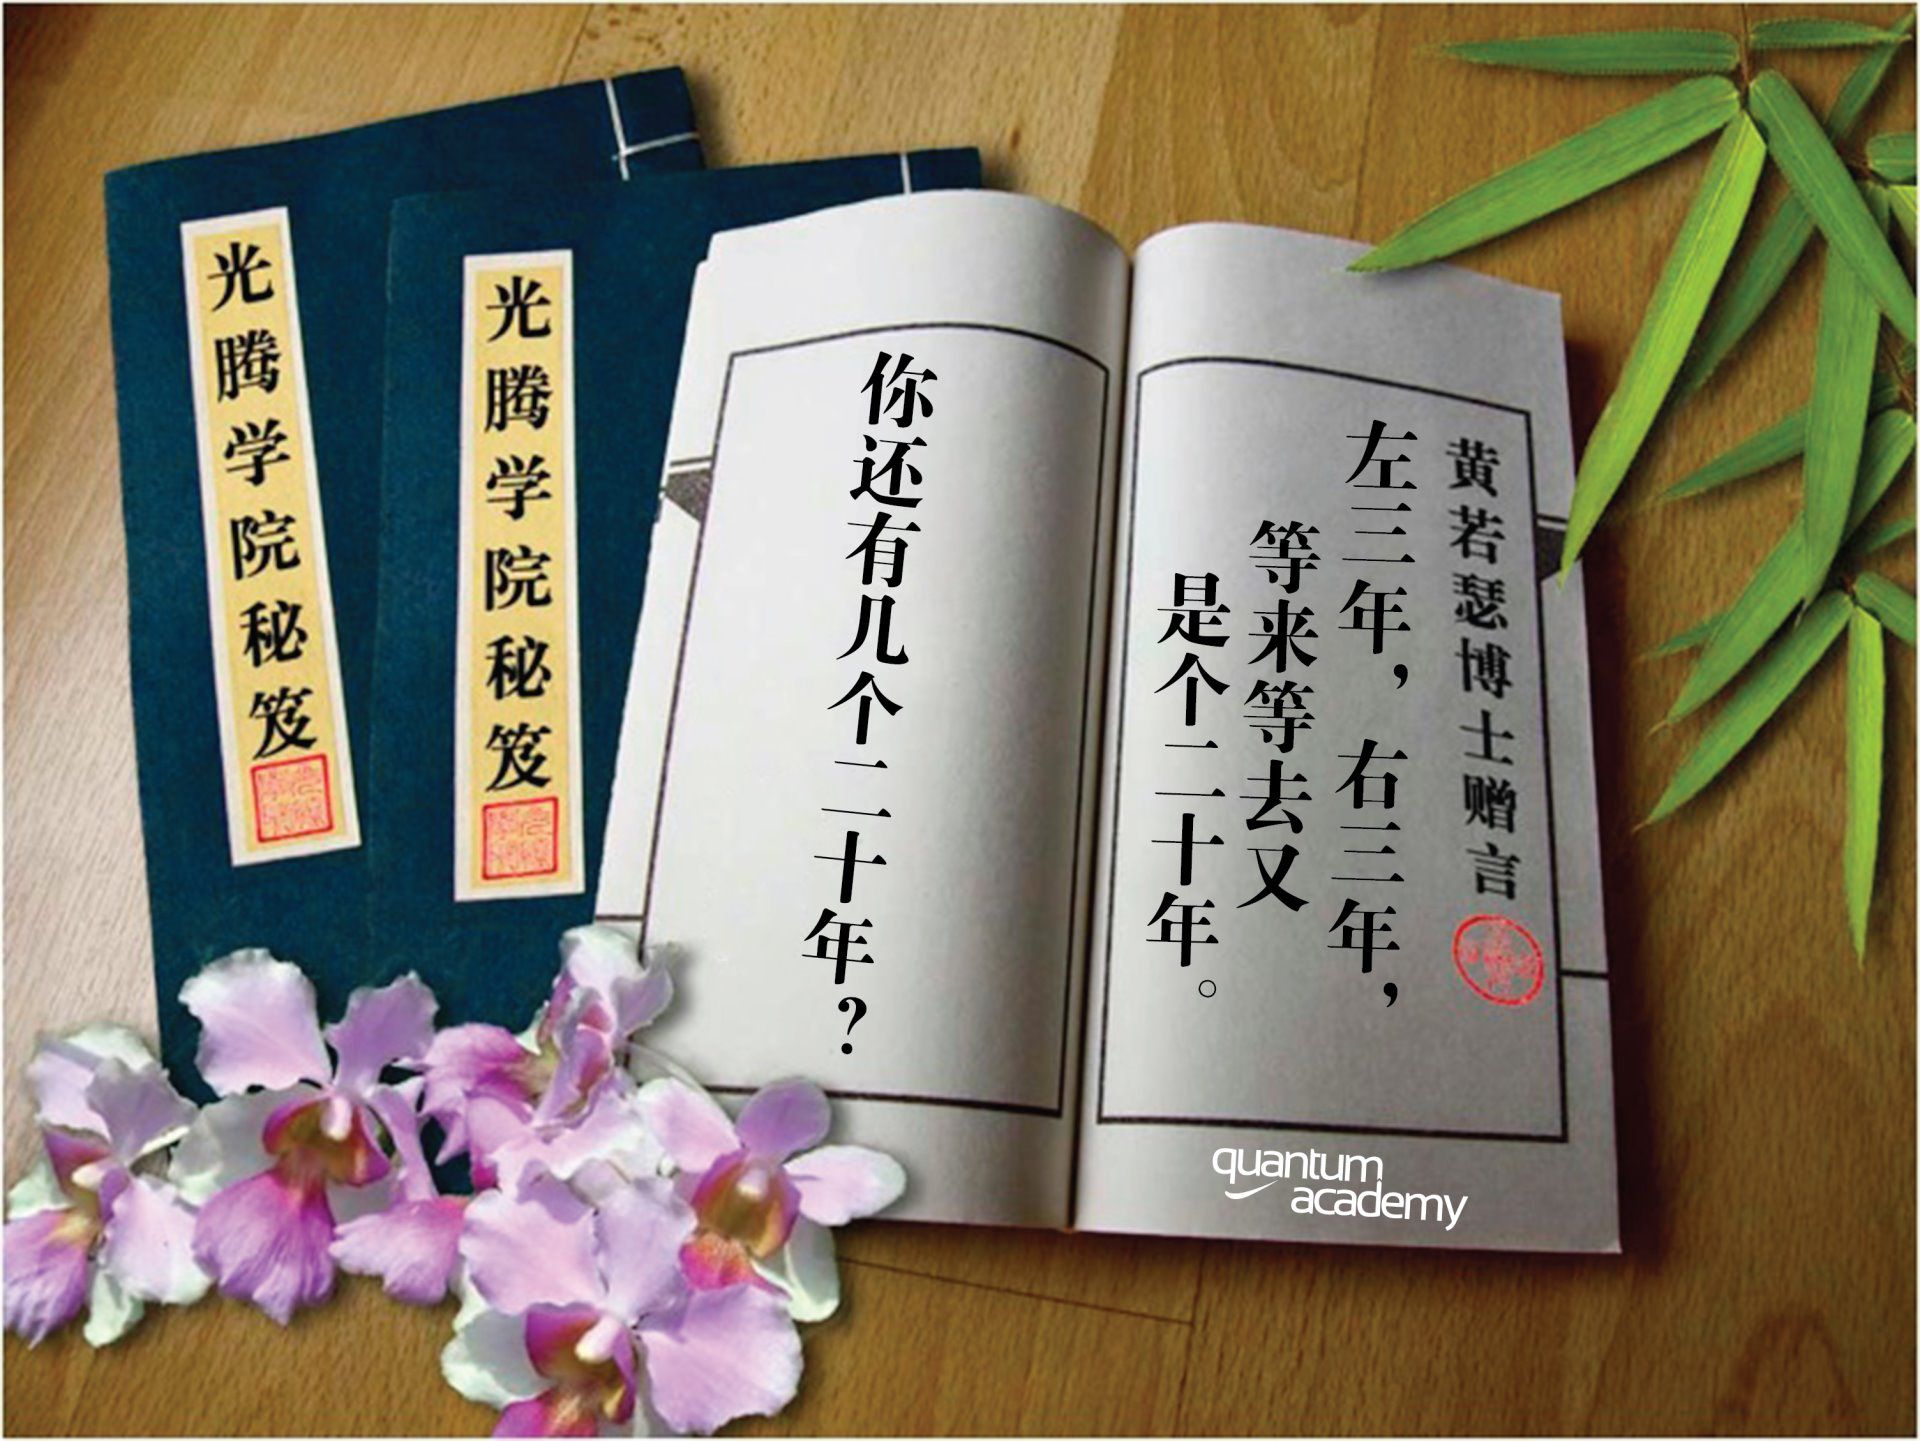 光腾学院秘笈
光腾学院秘笈
黄若瑟博士赠言
左三年，右三年，
等来等去又
是个二十年。
你还有几个二十年？
quantum
academy